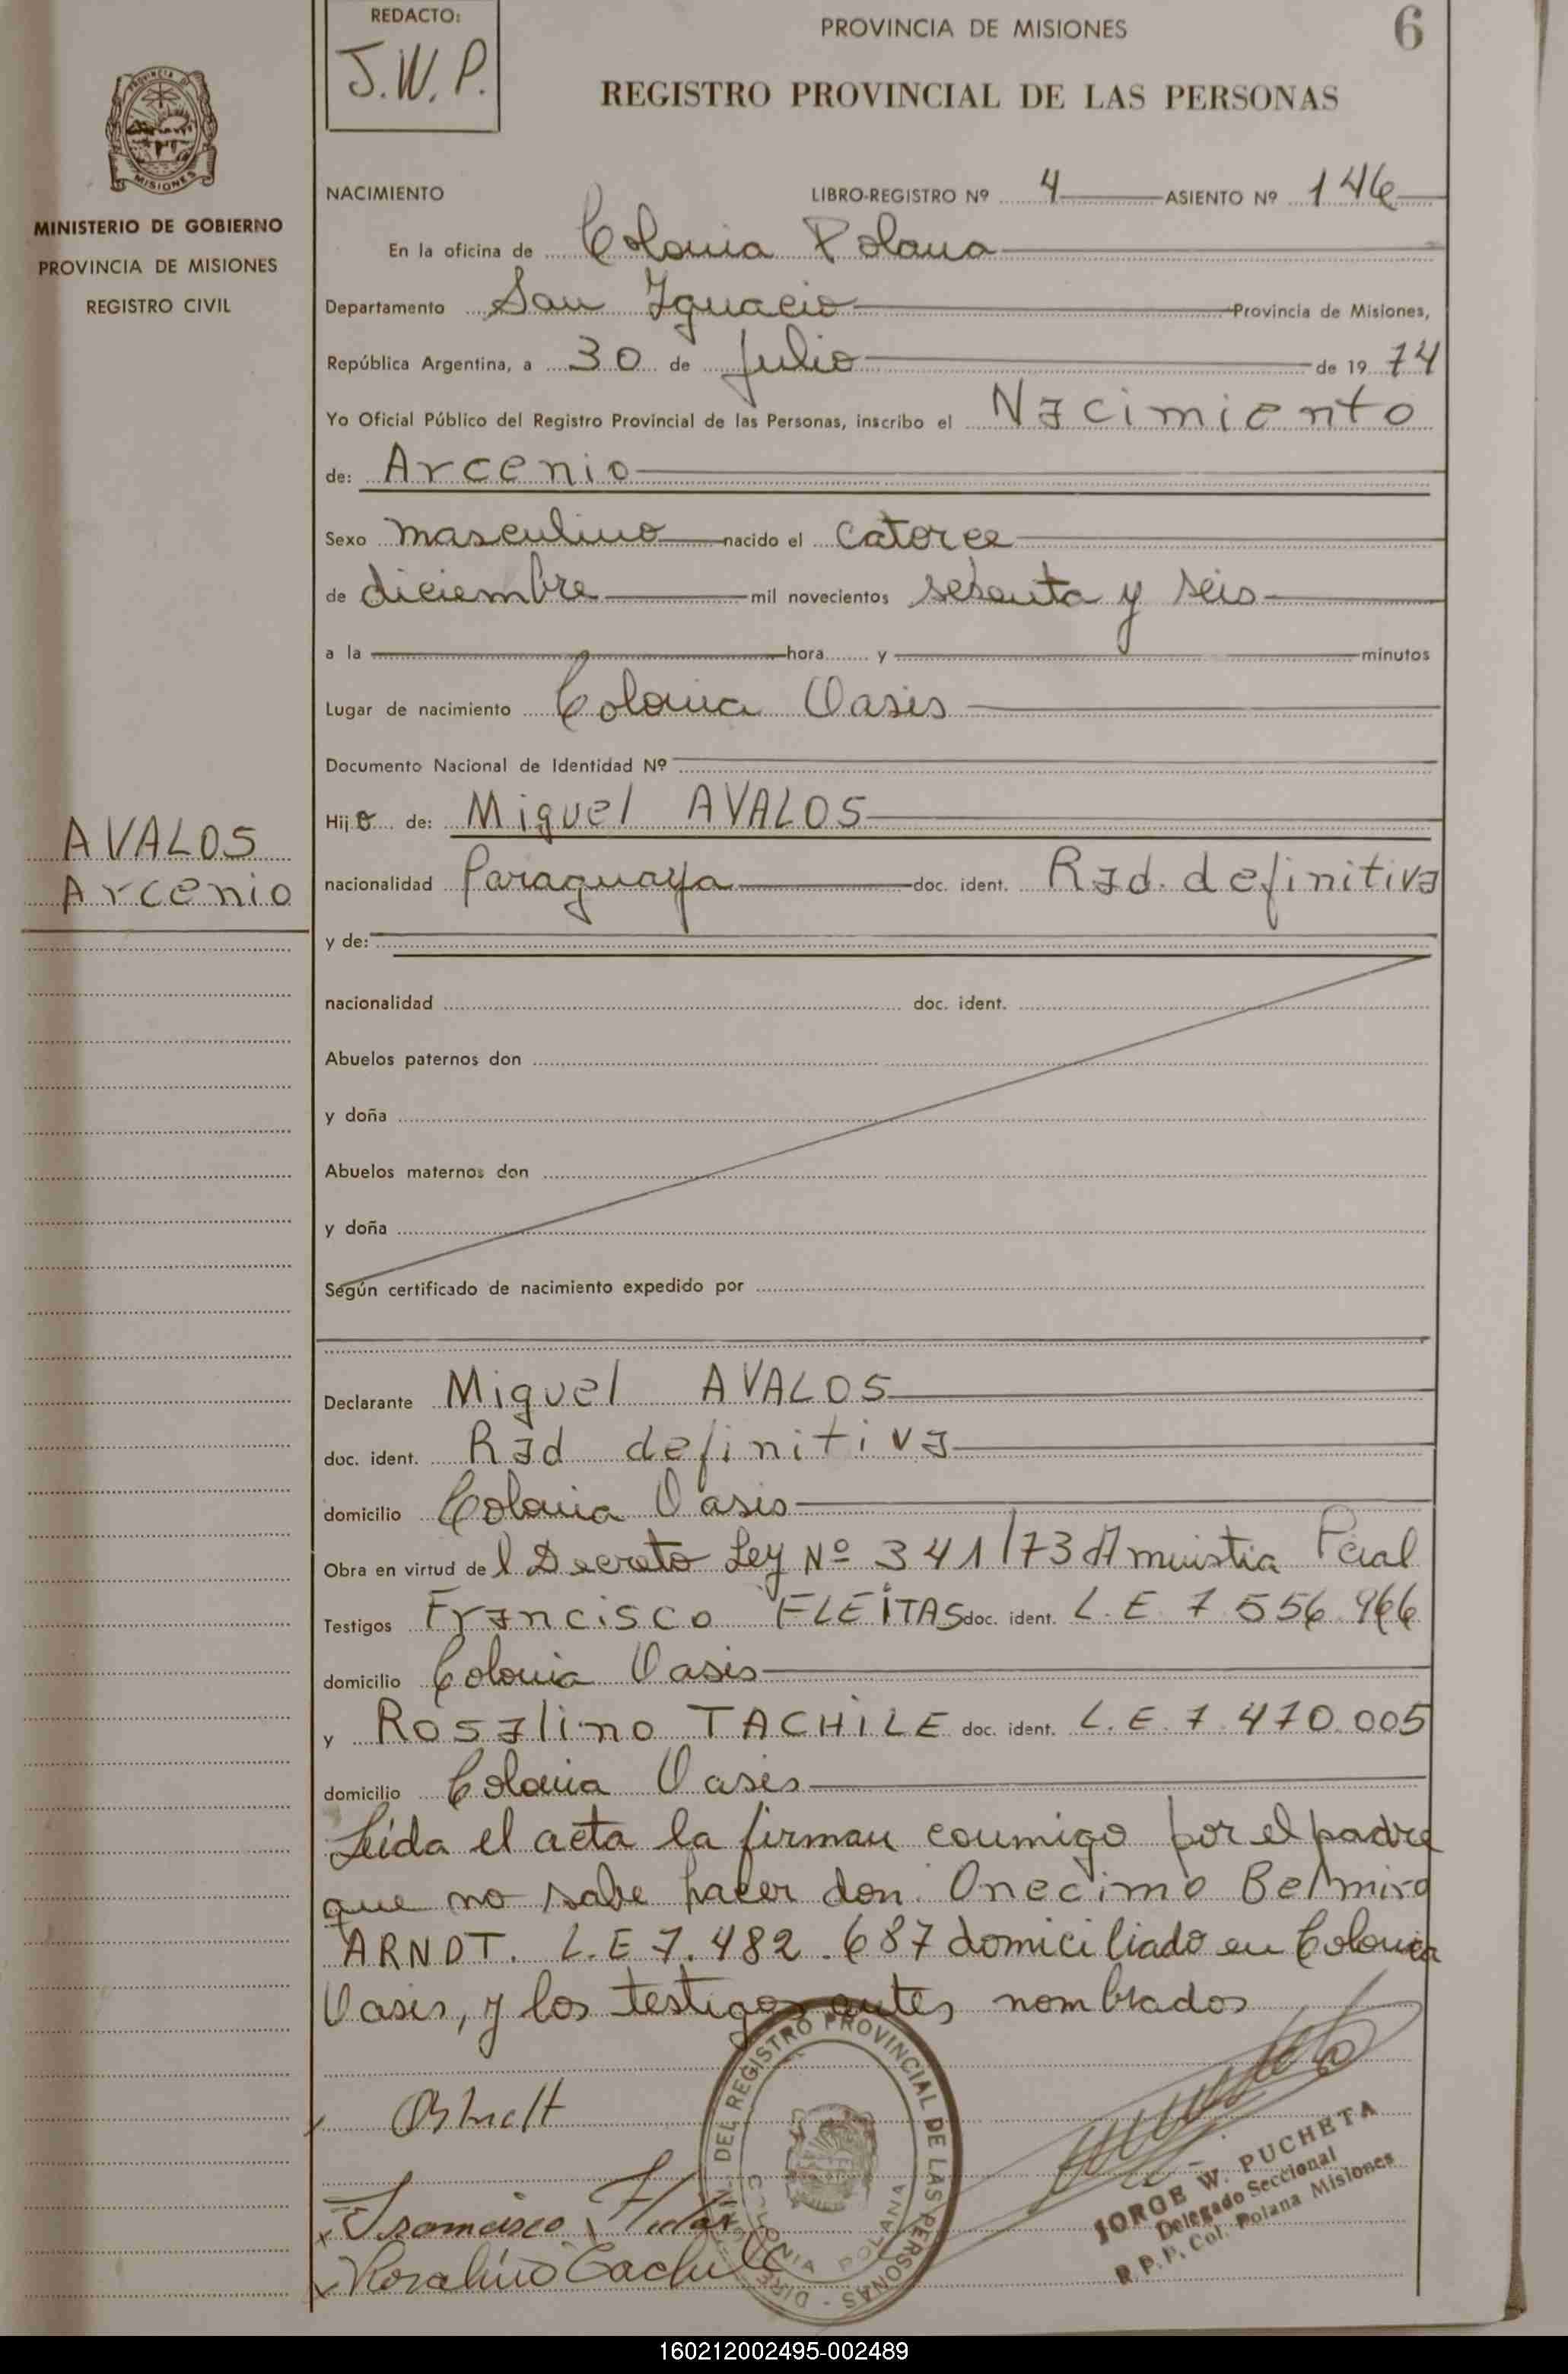 REDACTO:
J.W.P.
PROVINCIA DE MISIONES
6
REGISTRO PROVINCIAL DE LAS PERSONAS
MISIONES
MINISTERIO DE GOBIERNO
PROVINCIA DE MISIONES
REGISTRO CIVIL
NACIMIENTO LIBRO-REGISTRO Nº 4 ASIENTO Nº 146
En la oficina de Colonia Polana
Departamento San Ignacio Provincia de Misiones,
República Argentina, a 30 de Julio de 19 74
Yo Oficial Público del Registro Provincial de las Personas, inscribo el Nacimiento
de: Arcenio
Sexo masculino nacido el catorce
de diciembre mil novecientos sesenta y seis
a la hora y minutos
Lugar de nacimiento Colonia Oasis
Documento Nacional de Identidad Nº
Hijo de: Miguel AVALOS
AVALOS
Arcenio
nacionalidad Paraguaya doc. ident. Rad. definitiva
y de:
nacionalidad doc. ident.
Abuelos paternos don
y doña
Abuelos maternos don
y doña
Según certificado de nacimiento expedido por
Declarante Miguel AVALOS
doc. ident. Rad definitiva
domicilio Colonia Oasis
Obra en virtud del Decreto Ley Nº 341/73 Amnistia Pcial
Testigos Francisco FLEiTAS doc. ident. L.E 7.556.966
domicilio Colonia Oasis
y Rosalino TACHiLE doc. ident. L.E.7.470.005
domicilio Colonia Oasis
Leída el acta la firman conmigo por el padre
que no sabe hacer don Onecimo Belmiro
ARNDT. L.E 7.482.687 domiciliado en Colonia
Oasis, y los testigos antes nombrados
DEL REGISTRO PROVINCIAL DE LAS PERSONAS
COLONIA POLANA
Francisco
Rosalino Tachile
JORGE W. PUCHETA
Delegado Seccional
R.P.P. Col. Polana Misiones
160212002495-002489